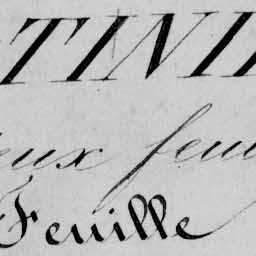 TINI
eux feui
Feuille